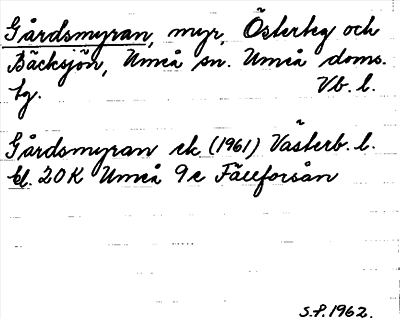 Gårdsmyran, myr, Österteg och
Bäcksjön, Umeå sn. Umeå doms.
tg. Vb. l.
Gårdsmyran ek (1961) Västerb. l.
bl. 20K Umeå 9c Fällforsån
S.P. 1962.